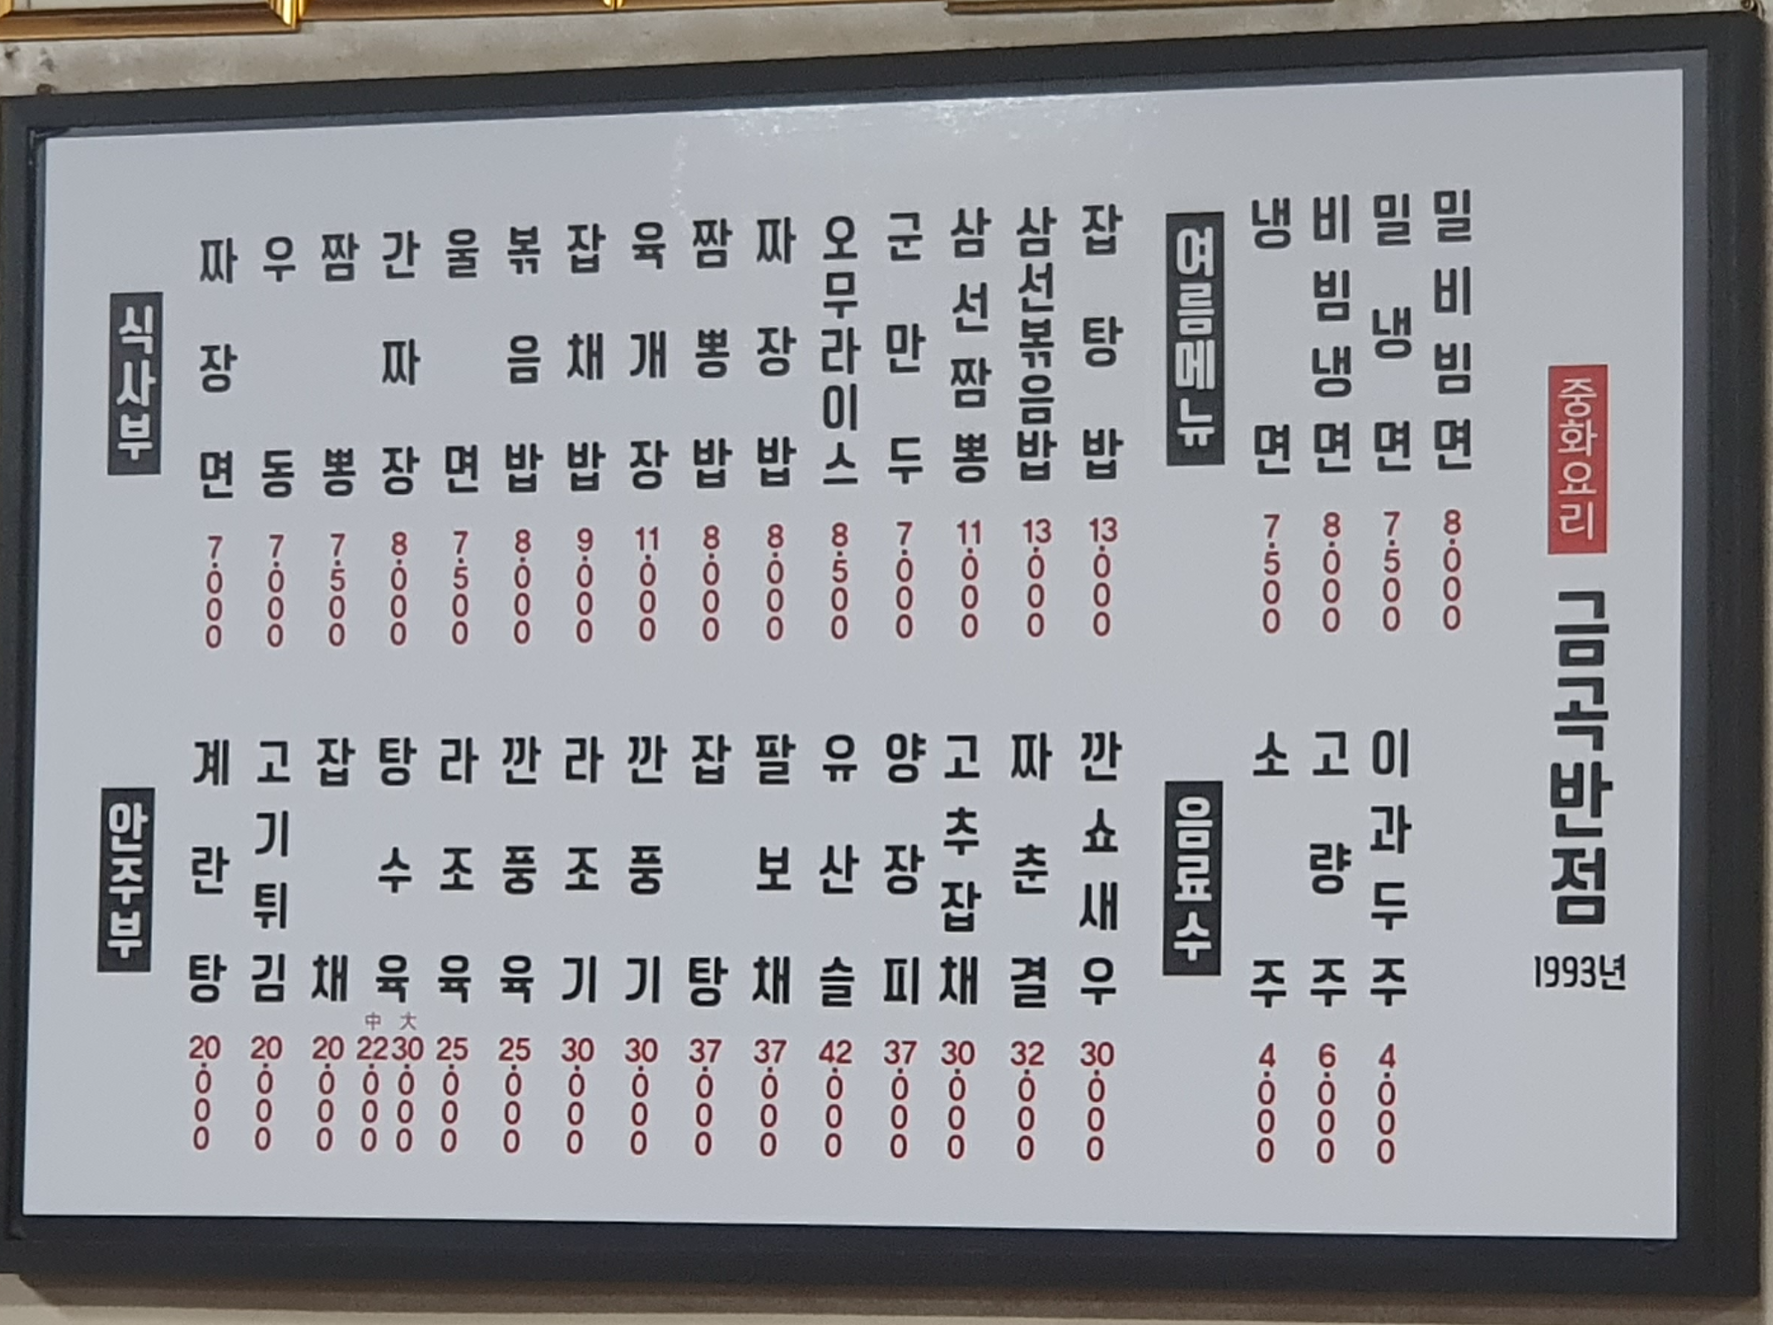 식사부
짜장면 7.000
우동 7.000
짬뽕 7.500
간짜장 8.000
울면 7.500
볶음밥 8.000
잡채밥 9.000
육개장 11.000
짬뽕밥 8.000
짜장밥 8.000
오무라이스 8.500
군만두 7.000
삼선짬뽕 11.000
삼선볶음밥 13.000
잡탕밥 13.000
여름메뉴
냉면 7.500
비빔냉면 8.000
밀냉면 7.500
밀비빔면 8.000
안주부
계란탕 20.000
고기튀김 20.000
잡채 20.000
탕수육 中 22.000 大 30.000
라조육 25.000
깐풍육 25.000
라조기 30.000
깐풍기 30.000
잡탕 37.000
팔보채 37.000
유산슬 42.000
양장피 37.000
고추잡채 30.000
짜춘결 32.000
깐쇼새우 30.000
음료수
소주 4.000
고량주 6.000
이과두주 4.000
중화요리
금곡반점
1993년